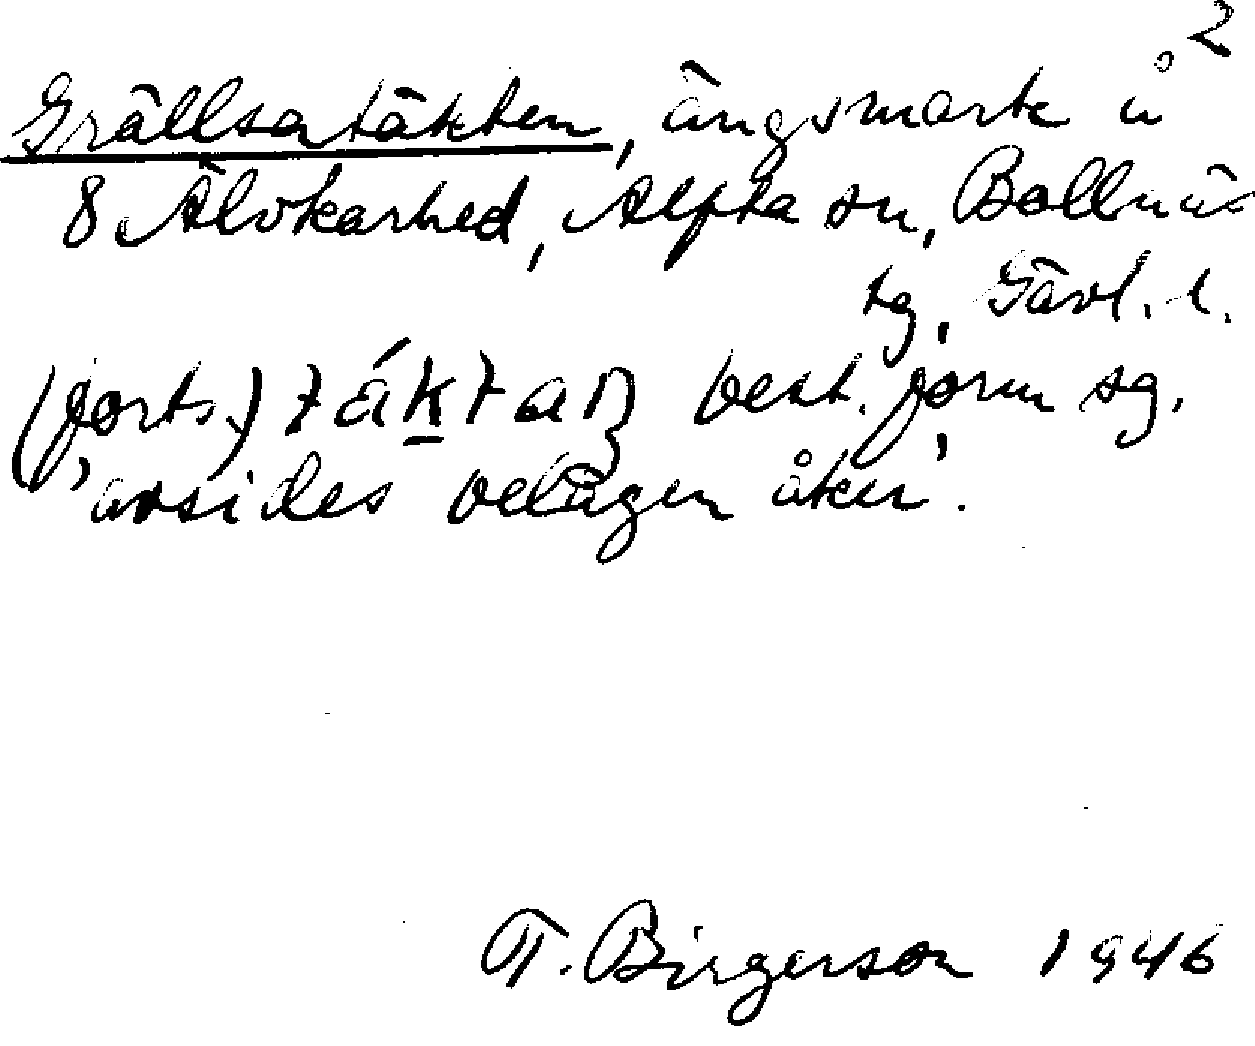 2
Grällsatäkten, ängsmark å
8 Älvkarhed, Alfta sn, Bollnäs
tg, Gävl. l.
(forts.) táktaŋ best. form sg.
'avsides belägen åker'.
T. Birgerson 1946